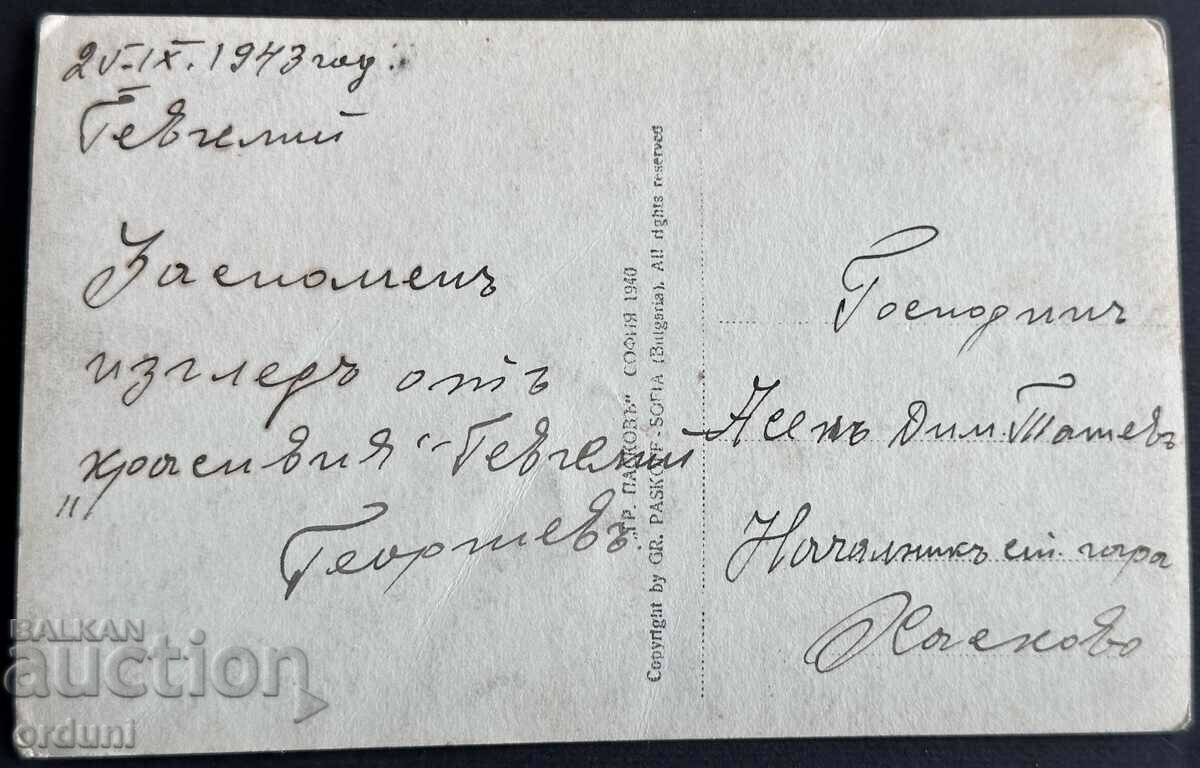 25-IX.1943 год.
Гевгелий
За споменъ
изгледъ отъ
„красивия“ Гевгелий
Георгиевъ.
„ГР. ПАСКОВЪ“ СОФИЯ 1940
Copyright by GR. PASKOFF - SOFIA (Bulgaria). All rights reserved
Господинъ
Асенъ Дим. Ташевъ
Началникъ ст. гара
Хасково
BALKAN
auction
orduni